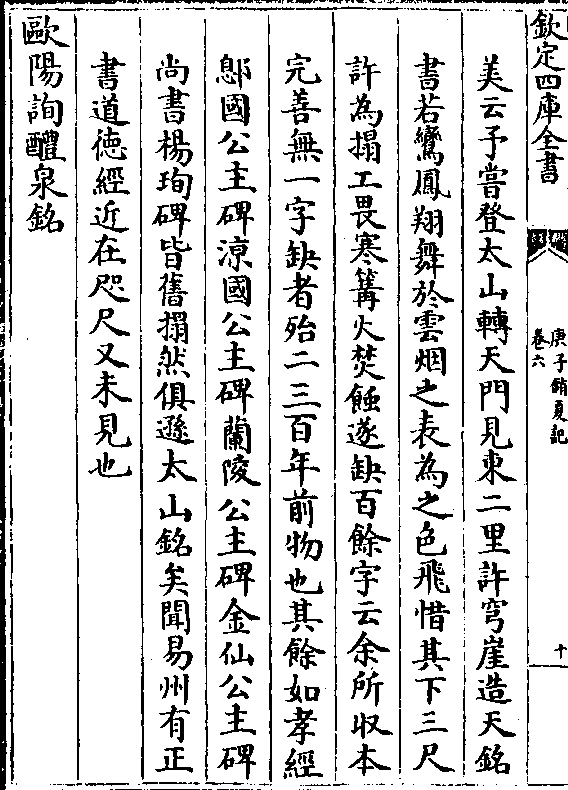 欽定四庫全書
庚子銷夏記
卷六
十
美云予嘗登太山轉天門見東二里許穹崖造天銘
書若鸞鳳翔舞於雲烟之表為之色飛惜其下三尺
許為搨工畏寒篝火焚蝕遂缺百餘字云余所收本
完善無一字缺者殆二三百年前物也其餘如孝經
鄎國公主碑涼國公主碑蘭陵公主碑金仙公主碑
尚書楊珣碑皆舊搨然俱遜太山銘矣聞易州有正
書道徳經近在咫尺又未見也
歐陽詢醴泉銘